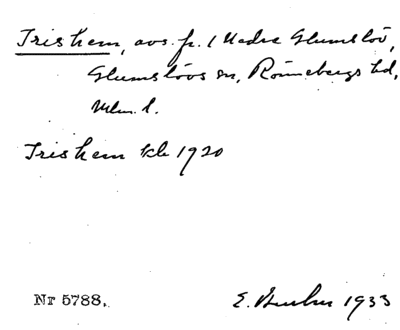 Triskem, avs. fr. 1 Nedre Glumslöv,
Glumslövs sn, Rönnebergs hd,
Mlm. l.
Triskem kb 1920
Nr 5788. E. 1933